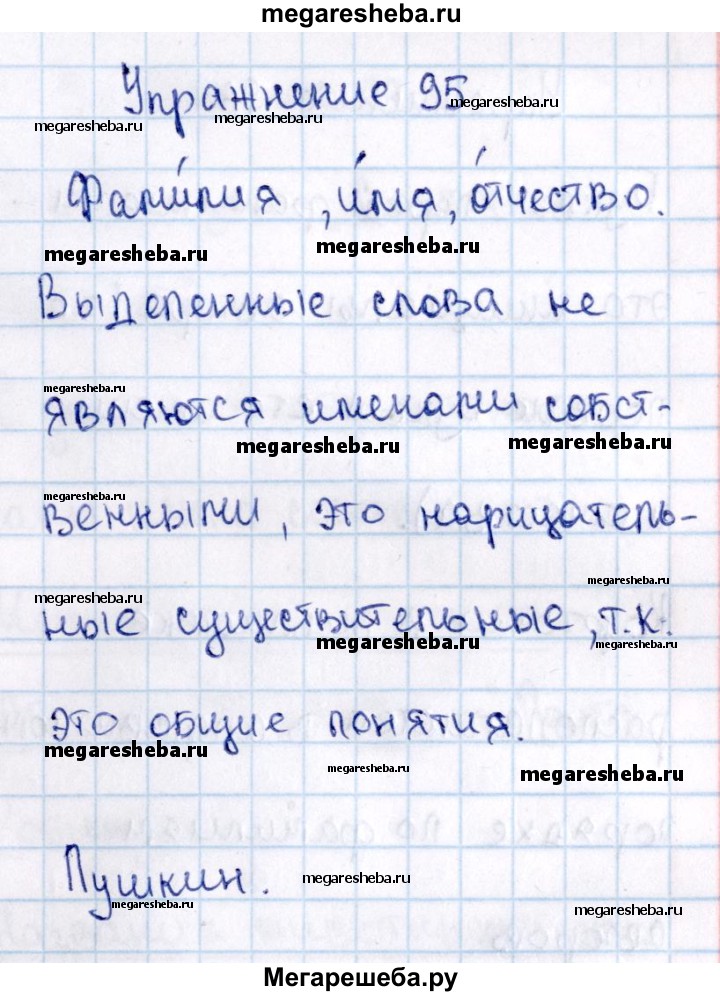 megaresheba.ru
Упражнение 95.
megaresheba.ru
megaresheba.ru
megaresheba.ru
Фами́лия, и́мя, о́тчество.
megaresheba.ru
megaresheba.ru
Выделенные слова не
megaresheba.ru
являются именами собст-
megaresheba.ru
megaresheba.ru
венными, это нарицатель-
megaresheba.ru
megaresheba.ru
megaresheba.ru
ные существительные, т.к.
megaresheba.ru
megaresheba.ru
это общие понятия.
megaresheba.ru
megaresheba.ru
megaresheba.ru
Пушкин.
megaresheba.ru
megaresheba.ru
megaresheba.ru
Мегарешеба.ру